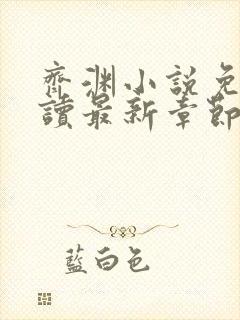 齊淵小說免
讀最新章節
藍白色